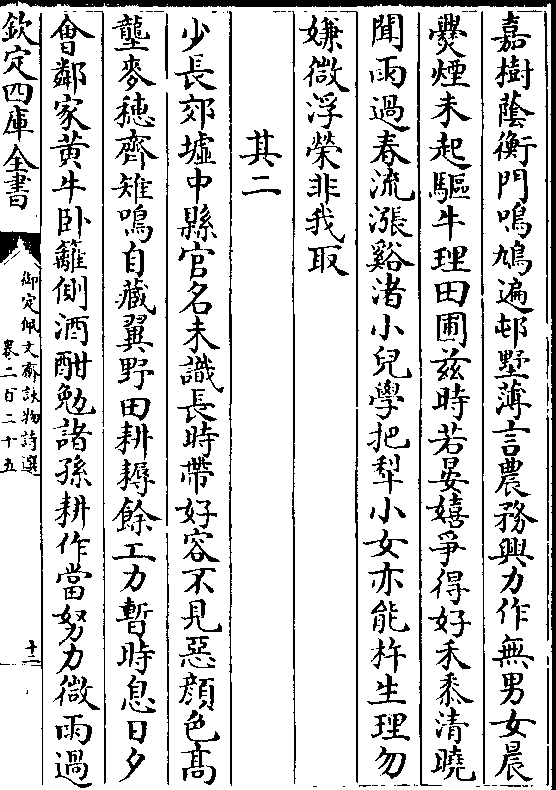 嘉樹蔭衡門鳴鳩遍邨墅薄言農務興力作無男女晨
爨煙未起驅牛理田圃兹時若晏嬉爭得好禾黍清曉
聞雨過春流漲谿渚小兒學把犁小女亦能杵生理勿
嫌微浮榮非我取
其二
少長郊墟中縣官名未識長時帶好容不見惡顔色髙
壟麥穂齊雉鳴自藏翼野田耕耨餘工力暫時息日夕
會鄰家黄牛卧籬側酒酣勉諸孫耕作當努力微雨過
欽定四庫全書
御定佩文齋詠物詩選
卷二百二十五
十二